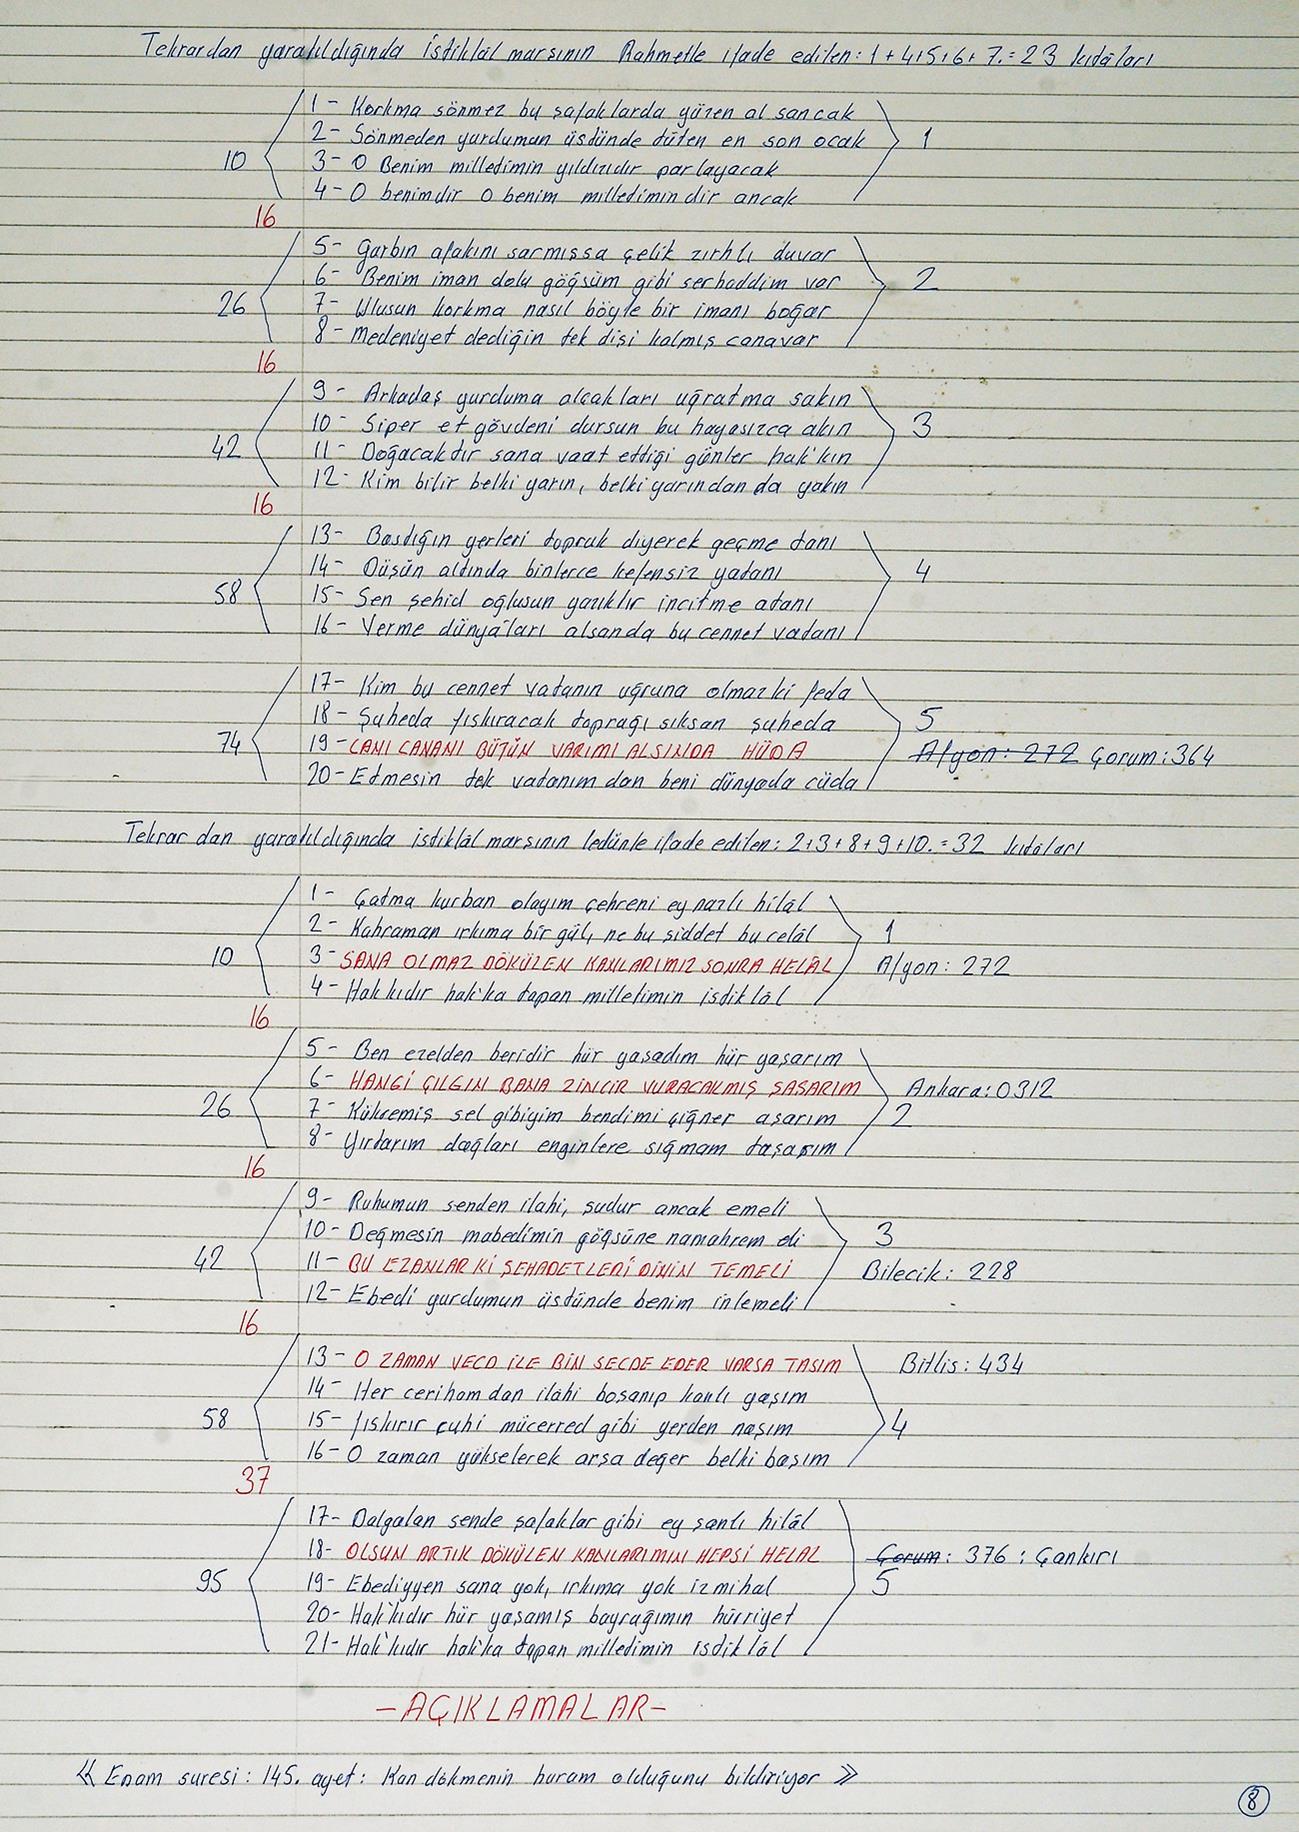 Tekrardan yaratıldığında istiklâl marsının Rahmetle ifade edilen: 1+4+5+6+7.=23 kıtâları
1- Korkma sönmez bu şafaklarda yüzen al sancak
2- Sönmeden yurduman üstünde tüten en son ocak
10 3- O Benim milletimin yıldızıdır parlayacak 1
4- O benimdir O benim milletimindir ancak
16
5- Garbın afakını sarmışsa çelik zırhlı duvar
6- Benim iman dolu göğsüm gibi serhaddim var 2
26 7- Ulusun korkma nasıl böyle bir imanı boğar
8- Medeniyet dediğin tek dişi kalmış canavar
16
9- Arkadaş yurduma alcakları uğratma sakın
10- Siper et gövdeni dursun bu hayasızca akın 3
42 11- Doğacaktır sana vaat ettiği günler hak'kın
12- Kim bilir belki yarın, belki yarından da yakın
16
13- Bastığın yerleri toprak diyerek geçme tanı
14- Düşün altında binlerce kefensiz yatanı 4
58 15- Sen şehid oğlusun yazıktır incitme atanı
16- Verme dünyaları alsanda bu cennet vatanı
17- Kim bu cennet vatanın uğruna olmazki feda
18- Şuheda fışkıracak toprağı sıksan şuheda 5
74 19- CANI CANANI BÜTÜN VARIMI ALSINDA HÜDA Afyon: 272 Çorum: 364
20- Etmesin tek vatanımdan beni dünyada cüda
Tekrar dan yaratıldığında istiklâl marsının ledünle ifade edilen: 2+3+8+9+10.=32 kıtâları
1- Çatma kurban olayım çehreni ey nazlı hilâl
2- Kahraman ırkıma bir gül, ne bu şiddet bu celâl 1
10 3- SANA OLMAZ DÖKÜLEN KANLARIMIZ SONRA HELÂL Afyon: 272
4- Hak'kıdır hak'ka tapan milletimin istiklâl
16
5- Ben ezelden beridir hür yaşadım hür yaşarım
6- HANGİ ÇILGIN BANA ZİNCİR VURACAKMIŞ ŞAŞARIM Ankara: 0312
26 7- Kükremiş sel gibiyim bendimi çiğner aşarım 2
8- Yırtarım dağları enginlere sığmam taşarım
16
9- Ruhumun senden ilahi, şudur ancak emeli
10- Değmesin mabedimin göğsüne namahrem eli 3
42 11- BU EZANLAR Kİ ŞEHADETLERİ DİNİN TEMELİ Bilecik: 228
12- Ebedi yurdumun üstünde benim inlemeli
16
13- O ZAMAN VECD İLE BİN SECDE EDER VARSA TAŞIM Bitlis: 434
14- Her cerihamdan ilahi boşanıp kanlı yaşım
58 15- fışkırır ruhi mücerred gibi yerden naşım 4
16- O zaman yükselerek arşa değer belki başım
37
17- Dalgalan sende şafaklar gibi ey şanlı hilâl
18- OLSUN ARTIK DÖKÜLEN KANLARIMIN HEPSİ HELAL Çorum: 376: Çankırı
95 19- Ebediyyen sana yok, ırkıma yok izmihal 5
20- Hak'kıdır hür yaşamış bayrağımın hürriyet
21- Hak'kıdır hak'ka tapan milletimin istiklâl
-AÇIKLAMALAR-
« Enam suresi: 145. ayet: Kan dökmenin haram olduğunu bildiriyor »
8